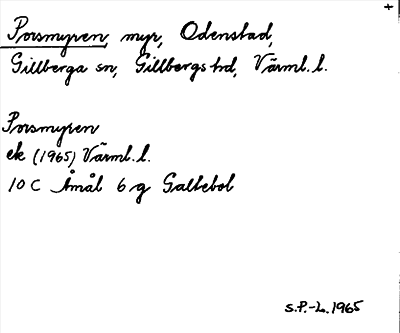 +
Porsmyren, myr, Odenstad,
Gillberga sn, Gillbergs hd, Värml. l.
Porsmyren
ek (1965) Värml. l.
10 C Åmål 6 g Galtebol
S.P.-L. 1965